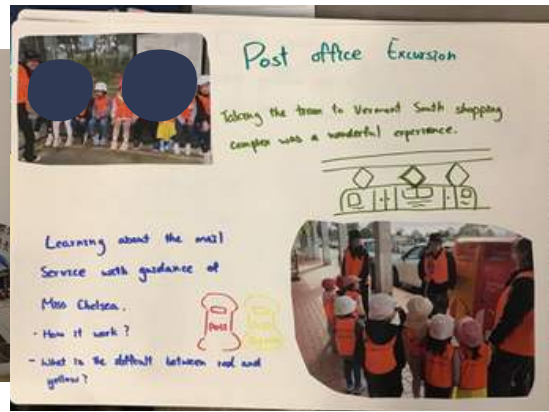 Post office Excursion
Taking the tram to Vermont South shopping
complex was a wonderful experience.
Learning about the mail
Service with guidance of
Miss Chelsea.
- How it work?
- What is the diffcult between red and
yellow?
Post